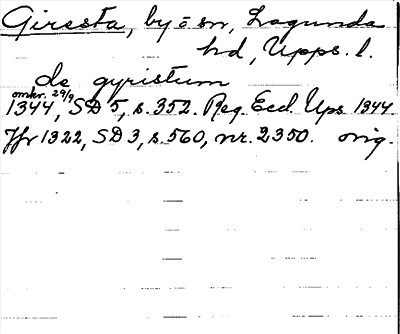 Giresta, by o sn, Lagunda
hd, Upps. l.
de gyristum
omkr. 29/9
1344, SD 5, s. 352. Reg. Eccl. Ups 1344.
Jfr 1322, SD 3, s. 560, nr. 2350. orig.